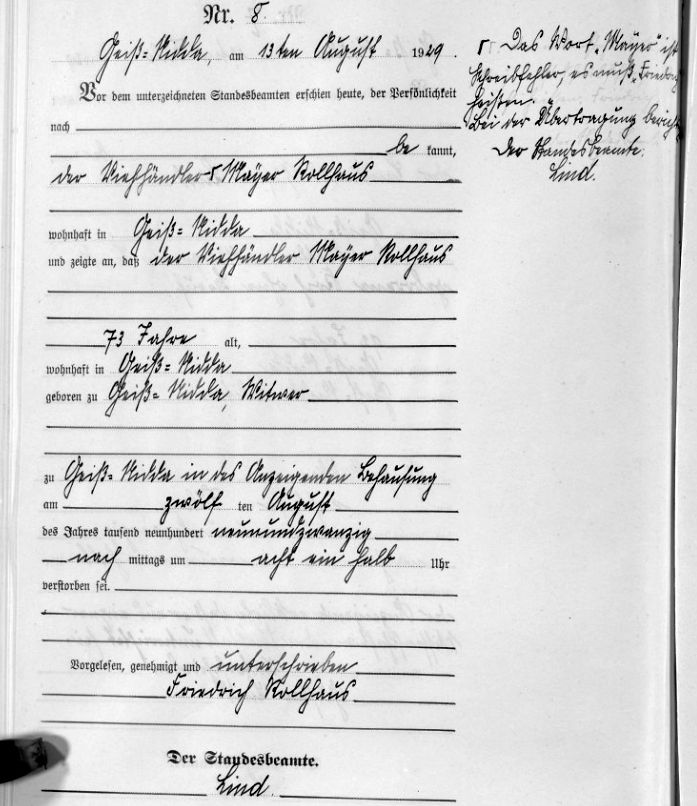 Nr. 8.
Geiß-Nidda, am 13ten August 1929.
Vor dem unterzeichneten Standesbeamten erschien heute, der Persönlichkeit
nach
be kannt,
der Viehhändler ⌈ Mayer Rollhaus
wohnhaft in Geiß-Nidda
und zeigte an, daß der Viehhändler Mayer Rollhaus
73 Jahre alt,
wohnhaft in Geiß-Nidda
geboren zu Geiß-Nidda, Witwer
zu Geiß-Nidda in des Anzeigenden Behausung
am zwölf ten August
des Jahres tausend neunhundert neunundzwanzig
nach mittags um acht ein halb Uhr
verstorben sei.
Vorgelesen, genehmigt und unterschrieben
Friedrich Rollhaus
Der Standesbeamte.
Lind.
⌈ Das Wort „Mayer" ist
Schreibfehler, es muß „Friedrich
heißen."
Bei der Übertragung
Der Standesbeamte.
Lind.